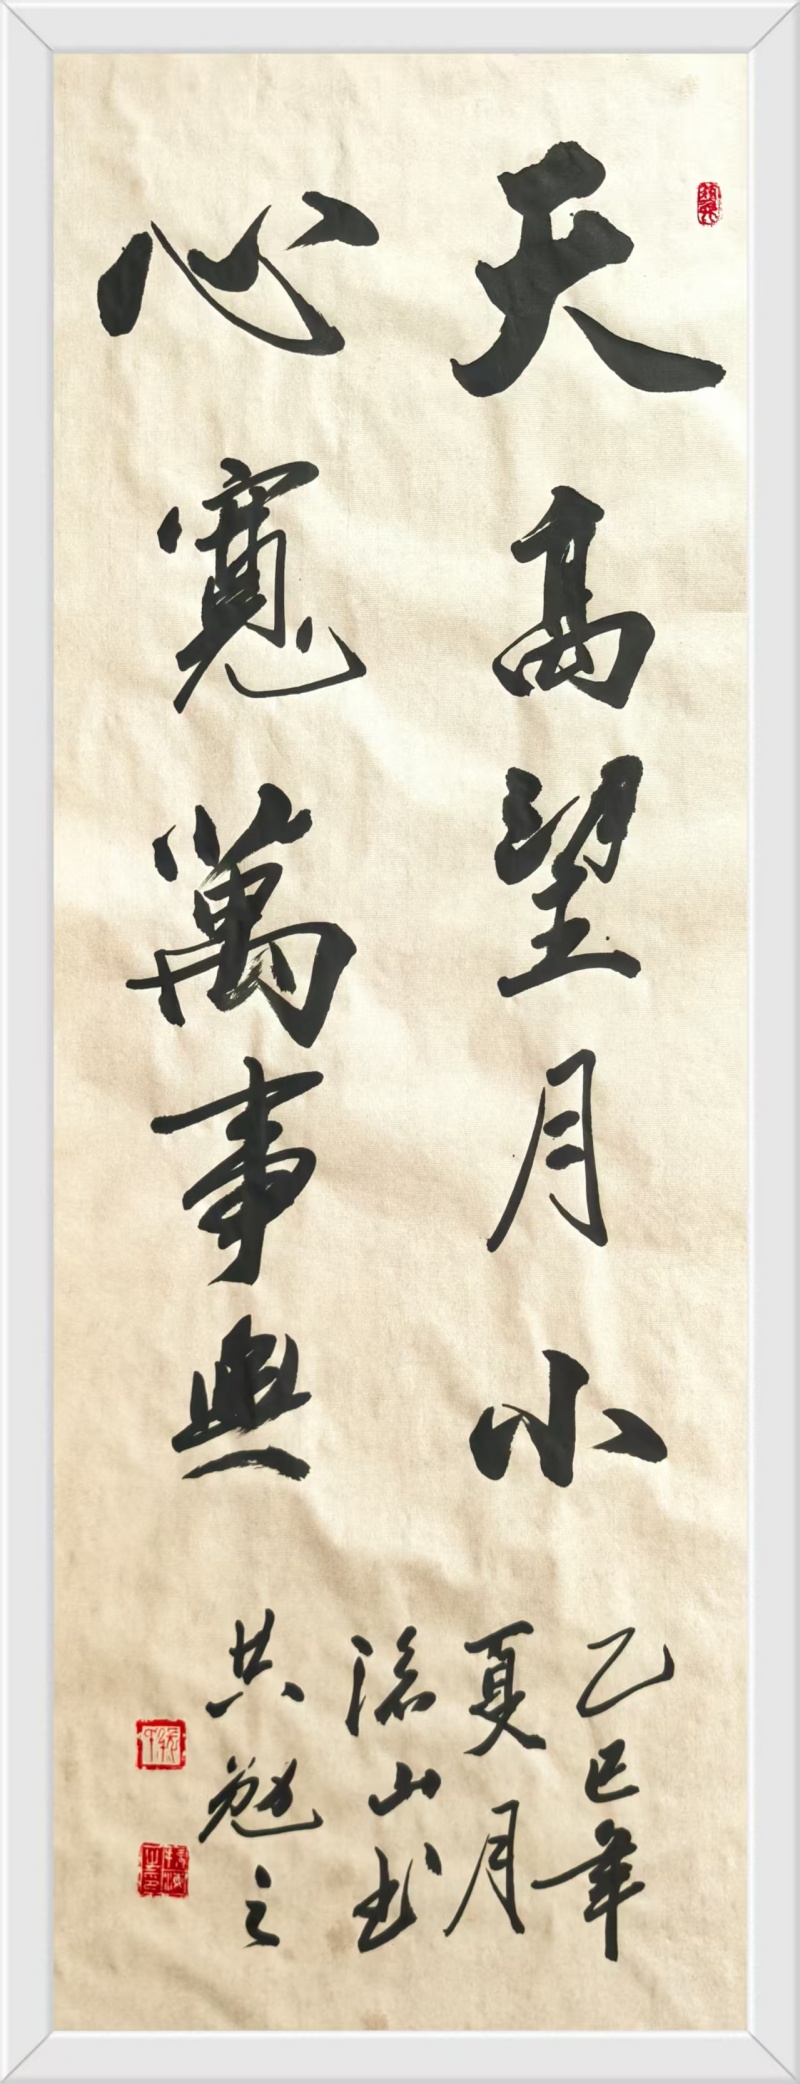 天高望月小
心寬萬事興
乙巳年
夏月
山书
共勉之